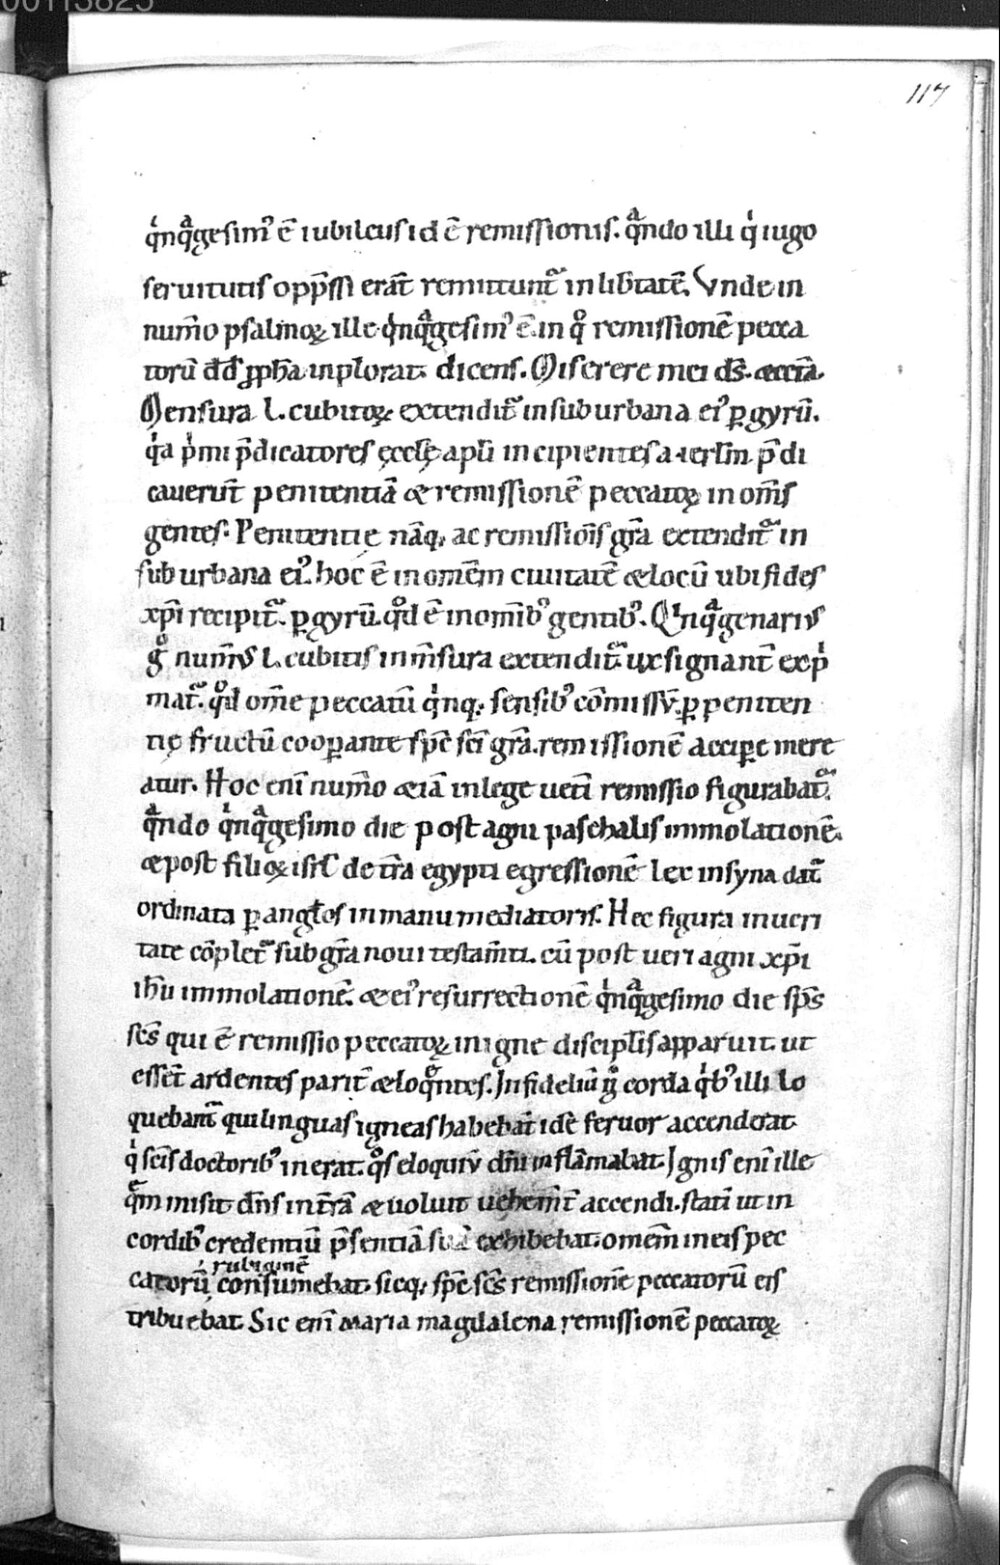 00113825
117
q̍nq̄gesimꝰ ē iubileus id ē remissionis. qᷓndo illi q̍ iugo
seruitutis opp̄ssi erāt remittunt᷑ in lib̄tatē. Vnde in
num̄o psalmoꝝ ille q̍nqᷓgesimꝰ ē. in qͦ remissionē pecca
torū dd̄ ꝓph̄a inplorat dicens. Miserere mei ds̄. & cet̄a.
Mensura .l. cubitoꝝ extendit᷑ in suburbana eiꝰ ꝑ gyrū.
q̍a p̍mi p̄dicatores ęccl̄ę apl̄i incipientes a ierl̄m p̄di
cauerūt penitentiā & remissionē peccatoꝝ in om̄s
gentes. Penitentie nāq; ac remissiōis gr̄a extendit᷑ in
suburbana eiꝰ. hoc ē in omēm ciuitatē & locū ubi fides
xp̄i recipit᷑. ꝑ gyrū. qͦd ē in om̄ibꝰ gentibꝰ. Q̍nqᷓgenarius
gͦ num̄us .l. cubitis in m̄sura extendit᷑ ut signant̄ exp̍
mat᷑. qͦd om̄e peccatū q̍nq; sensibꝰ cōmissū. ꝑ peniten
tię fructū cooꝑante sp̄c sc̄i gr̄a. remissionē acciꝑe mere
atur. Hoc enī num̄o &iā in lege uet̄i remissio figurabat᷑.
qᷓndo q̍nqᷓgesimo die post agni paschalis immolationē.
& post filioꝝ isrl̄ de t̄ra egypti egressionē lex in syna dat᷑
ordinata ꝑ angl̄os in manu mediatoris. Hec figura in ueri
tate cōplet᷑ sub gr̄a noui testam̄ti. cū post ueri agni xp̄i
ih̄u immolationē. & eiꝰ resurrectionē q̍nqᷓgesimo die sp̄s
sc̄s qui ē remissio peccatoꝝ in igne discipl̄is apparuit. ut
essēt ardentes parit̄ & loqᷓntes. Infideliū g̊ corda q̍bꝰ illi lo
quebant᷑ qui linguas igneas habebāt idē feruor accendebat
q̍ sc̄is doctoribꝰ inerat. qͦs eloquiū dn̄i inflāmabat. Ignis enī ille
quē misit dn̄s in t̄rā & uoluit uehem̄t̄ accendi. statī ut in
cordibꝰ credentiū p̄sentiā suā exhibebat. omēm in eis pec
rubiginē
catorū consumebat. sicq; sp̄c sc̄s remissionē peccatorū eis
tribuebat. Sic enī maria magdalena remissionē peccatoꝝ